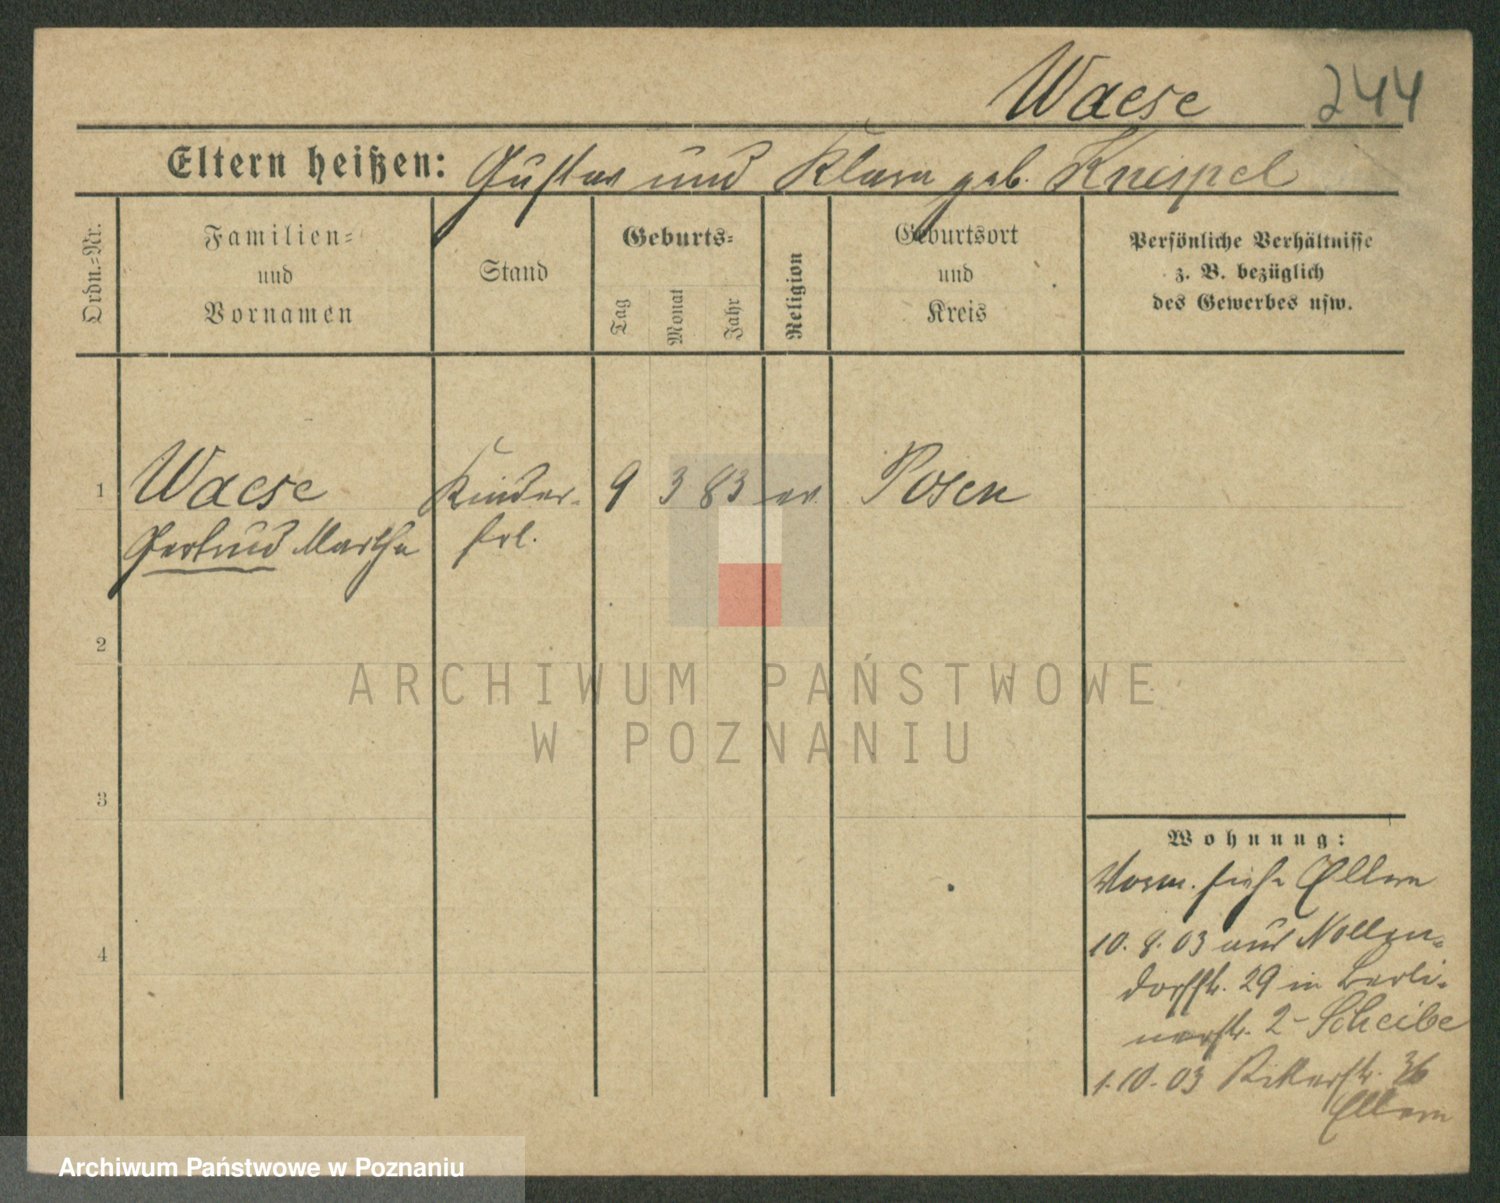 Waese 244
Eltern heißen: Gustav und Klara geb. Knispel
Ordn.-Nr.
Familien-
und
Vornamen
Stand
Geburts-
Tag
Monat
Jahr
Religion
Geburtsort
und
Kreis
Persönliche Verhältnisse
z. B. bezüglich
des Gewerbes usw.
1 Waese Kinder- 9 3 83 ev. Posen
Gertrud Martha frl.
2
ARCHIWUM PAŃSTWOWE
W POZNANIU
3
4
Wohnung:
Vorm. siehe Eltern
10. 8. 03 aus Nollen-
dorfstr. 29 in Berli-
nerstr. 2 - Scheibe
1. 10. 03 Ritterstr. 36
Eltern
Archiwum Państwowe w Poznaniu